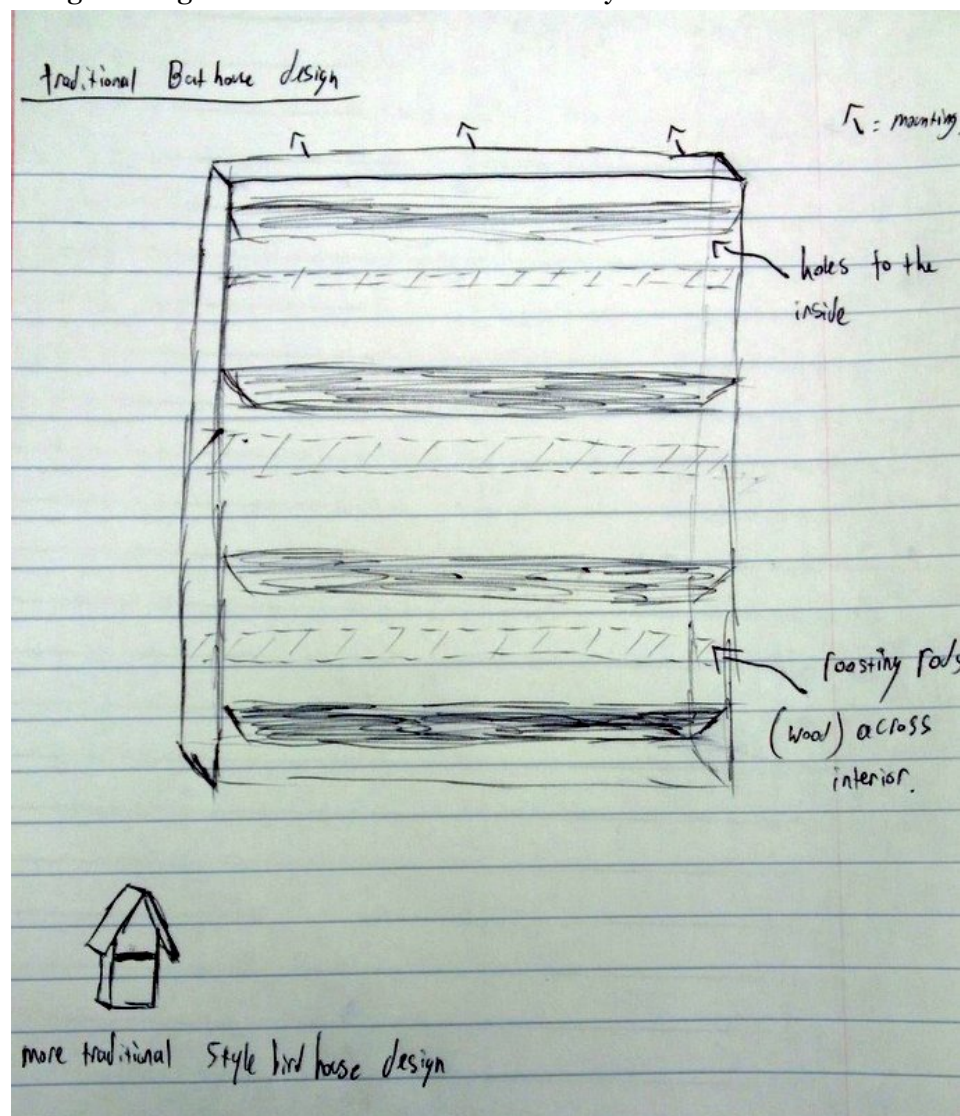 traditional Bat house design
= mounting
holes to the
inside
roosting rods
(wood) across
interior.
more traditional style bird house design